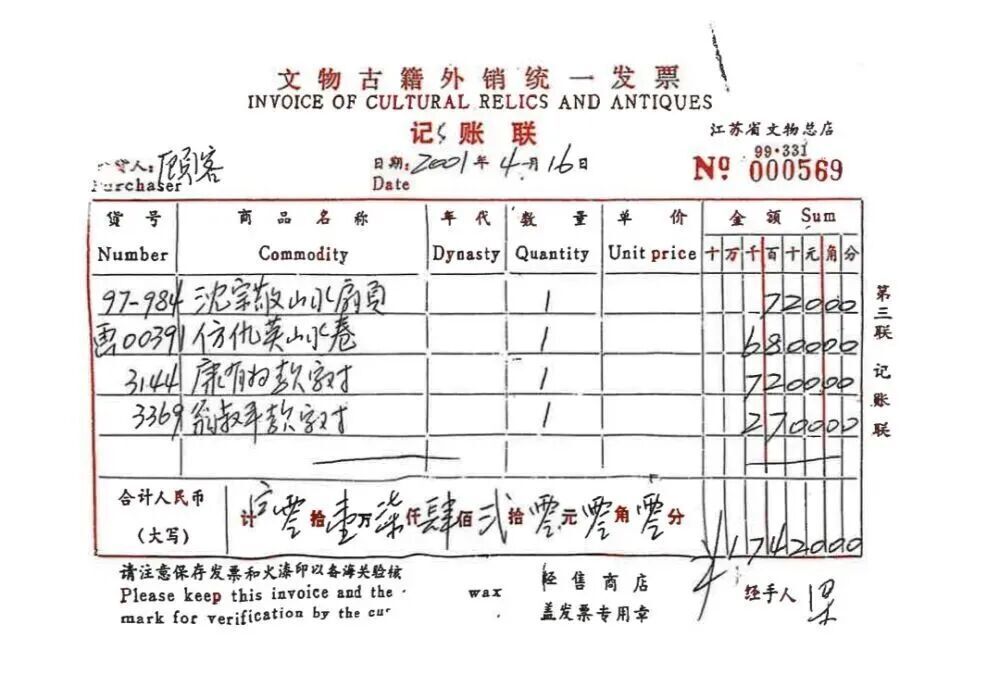 文物古籍外销统一发票
INVOICE OF CULTURAL RELICS AND ANTIQUES
记账联
江苏省文物总店
99·331
Nº 000569
日期: 2001年4月16日
Date
人: 顾客
Purchaser
货号 商品名称 年代 数量 单价 金额 Sum
Number Commodity Dynasty Quantity Unit price 十万千百十元角分
97-984 沈宗敬山水扇頁 1 72000
00391 仿仇英山水卷 1 680000
3144 康有为款字对 1 720000
3369 翁叔平款字对 1 270000
合计人民币
(大写)
计 零拾壹万柒仟肆佰贰拾零元零角零分
¥1742000
请注意保存发票和火漆印以备海关验核
Please keep this invoice and the wax
mark for verification by the cus
经售商店
盖发票专用章
经手人
第三联 记账联